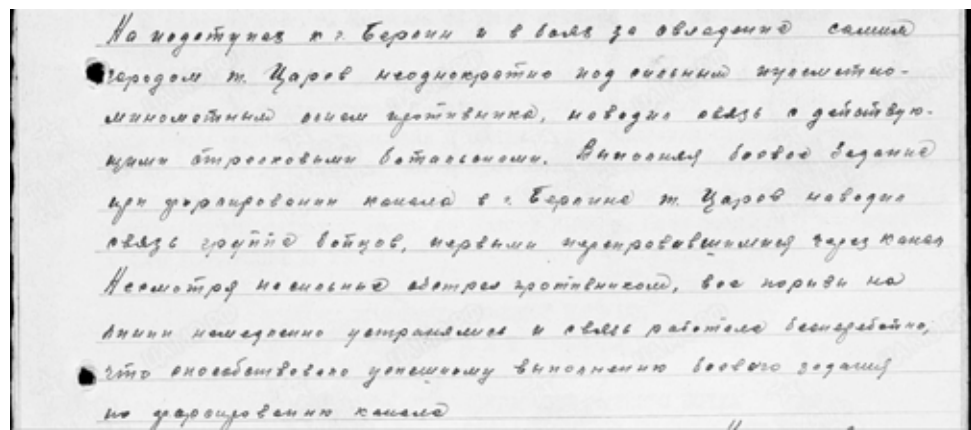 На подступах к г. Берлин и в боях за овладение самим
городом т. Царев неоднократно под сильным пулеметно-
минометным огнем противника, наводил связь с действую-
щими стрелковыми батальонами. Выполняя боевое задание
при форсировании канала в г. Берлине т. Царев наводил
связь группе бойцов, первыми переправившимися через канал
Несмотря на сильный обстрел противником, все порывы на
линии немедленно устранялись и связь работала бесперебойно,
что способствовало успешному выполнению боевого задания
по форсированию канала